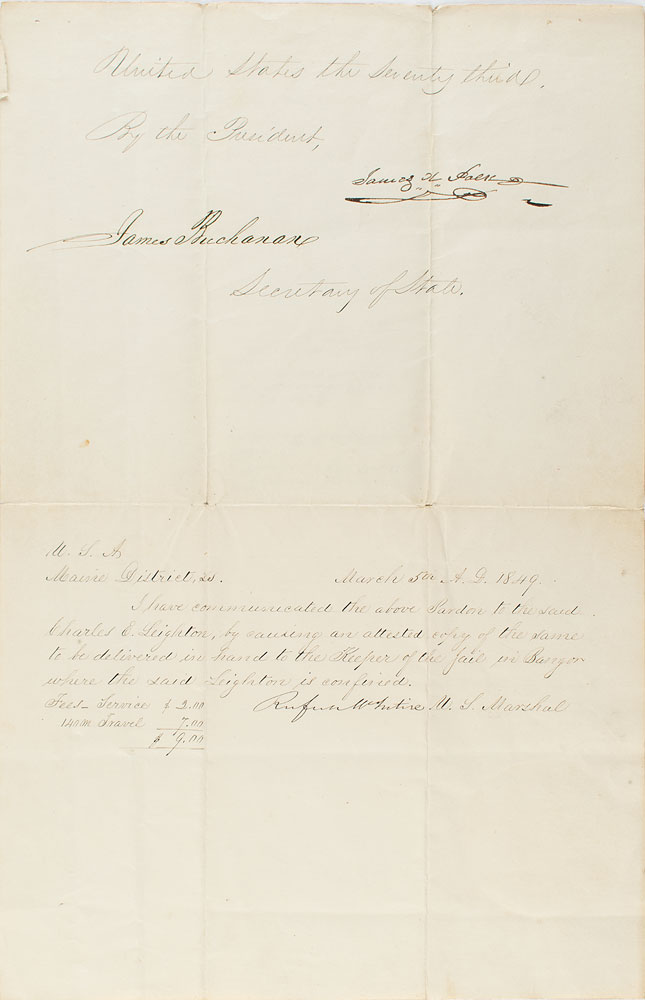 United States the Seventy third.
By the President,
James K Polk
James Buchanan
Secretary of State.
U. S. A.
Maine District, ss. March 5th A. D. 1849.
I have communicated the above Pardon to the said
Charles E. Leighton, by causing an attested copy of the same
to be delivered in hand to the Keeper of the Jail in Bangor
where the said Leighton is confined.
Fees - Service $ 2.00 Rufus McIntire U. S. Marshal
140 m Travel 7.00
$ 9.00